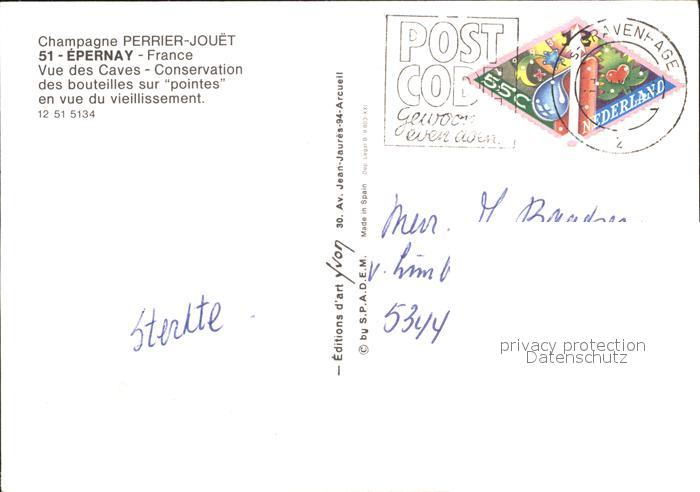 Champagne PERRIER-JOUËT
51 - ÉPERNAY - France
Vue des Caves - Conservation
des bouteilles sur "pointes"
en vue du vieillissement.
12 51 5134
Sterkte
— Éditions d'art yvon 30. Av. Jean-Jaurès-94-Arcueil
© by S.P.A.D.E.M. Made in Spain
POST
CODE
Gewoon
even doen.
'S-GRAVENHAGE
55C
NEDERLAND
Mevr. H
v. Limb
5344
privacy protection
Datenschutz